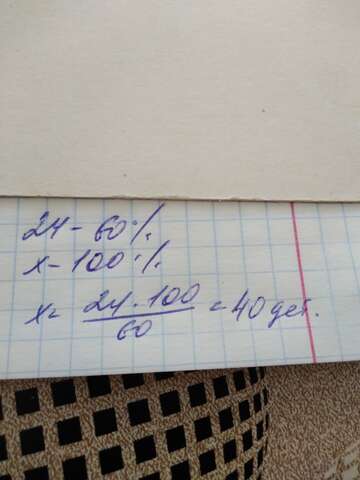 24 - 60%
x - 100%
x = 24 · 100 / 60 = 40 дет.